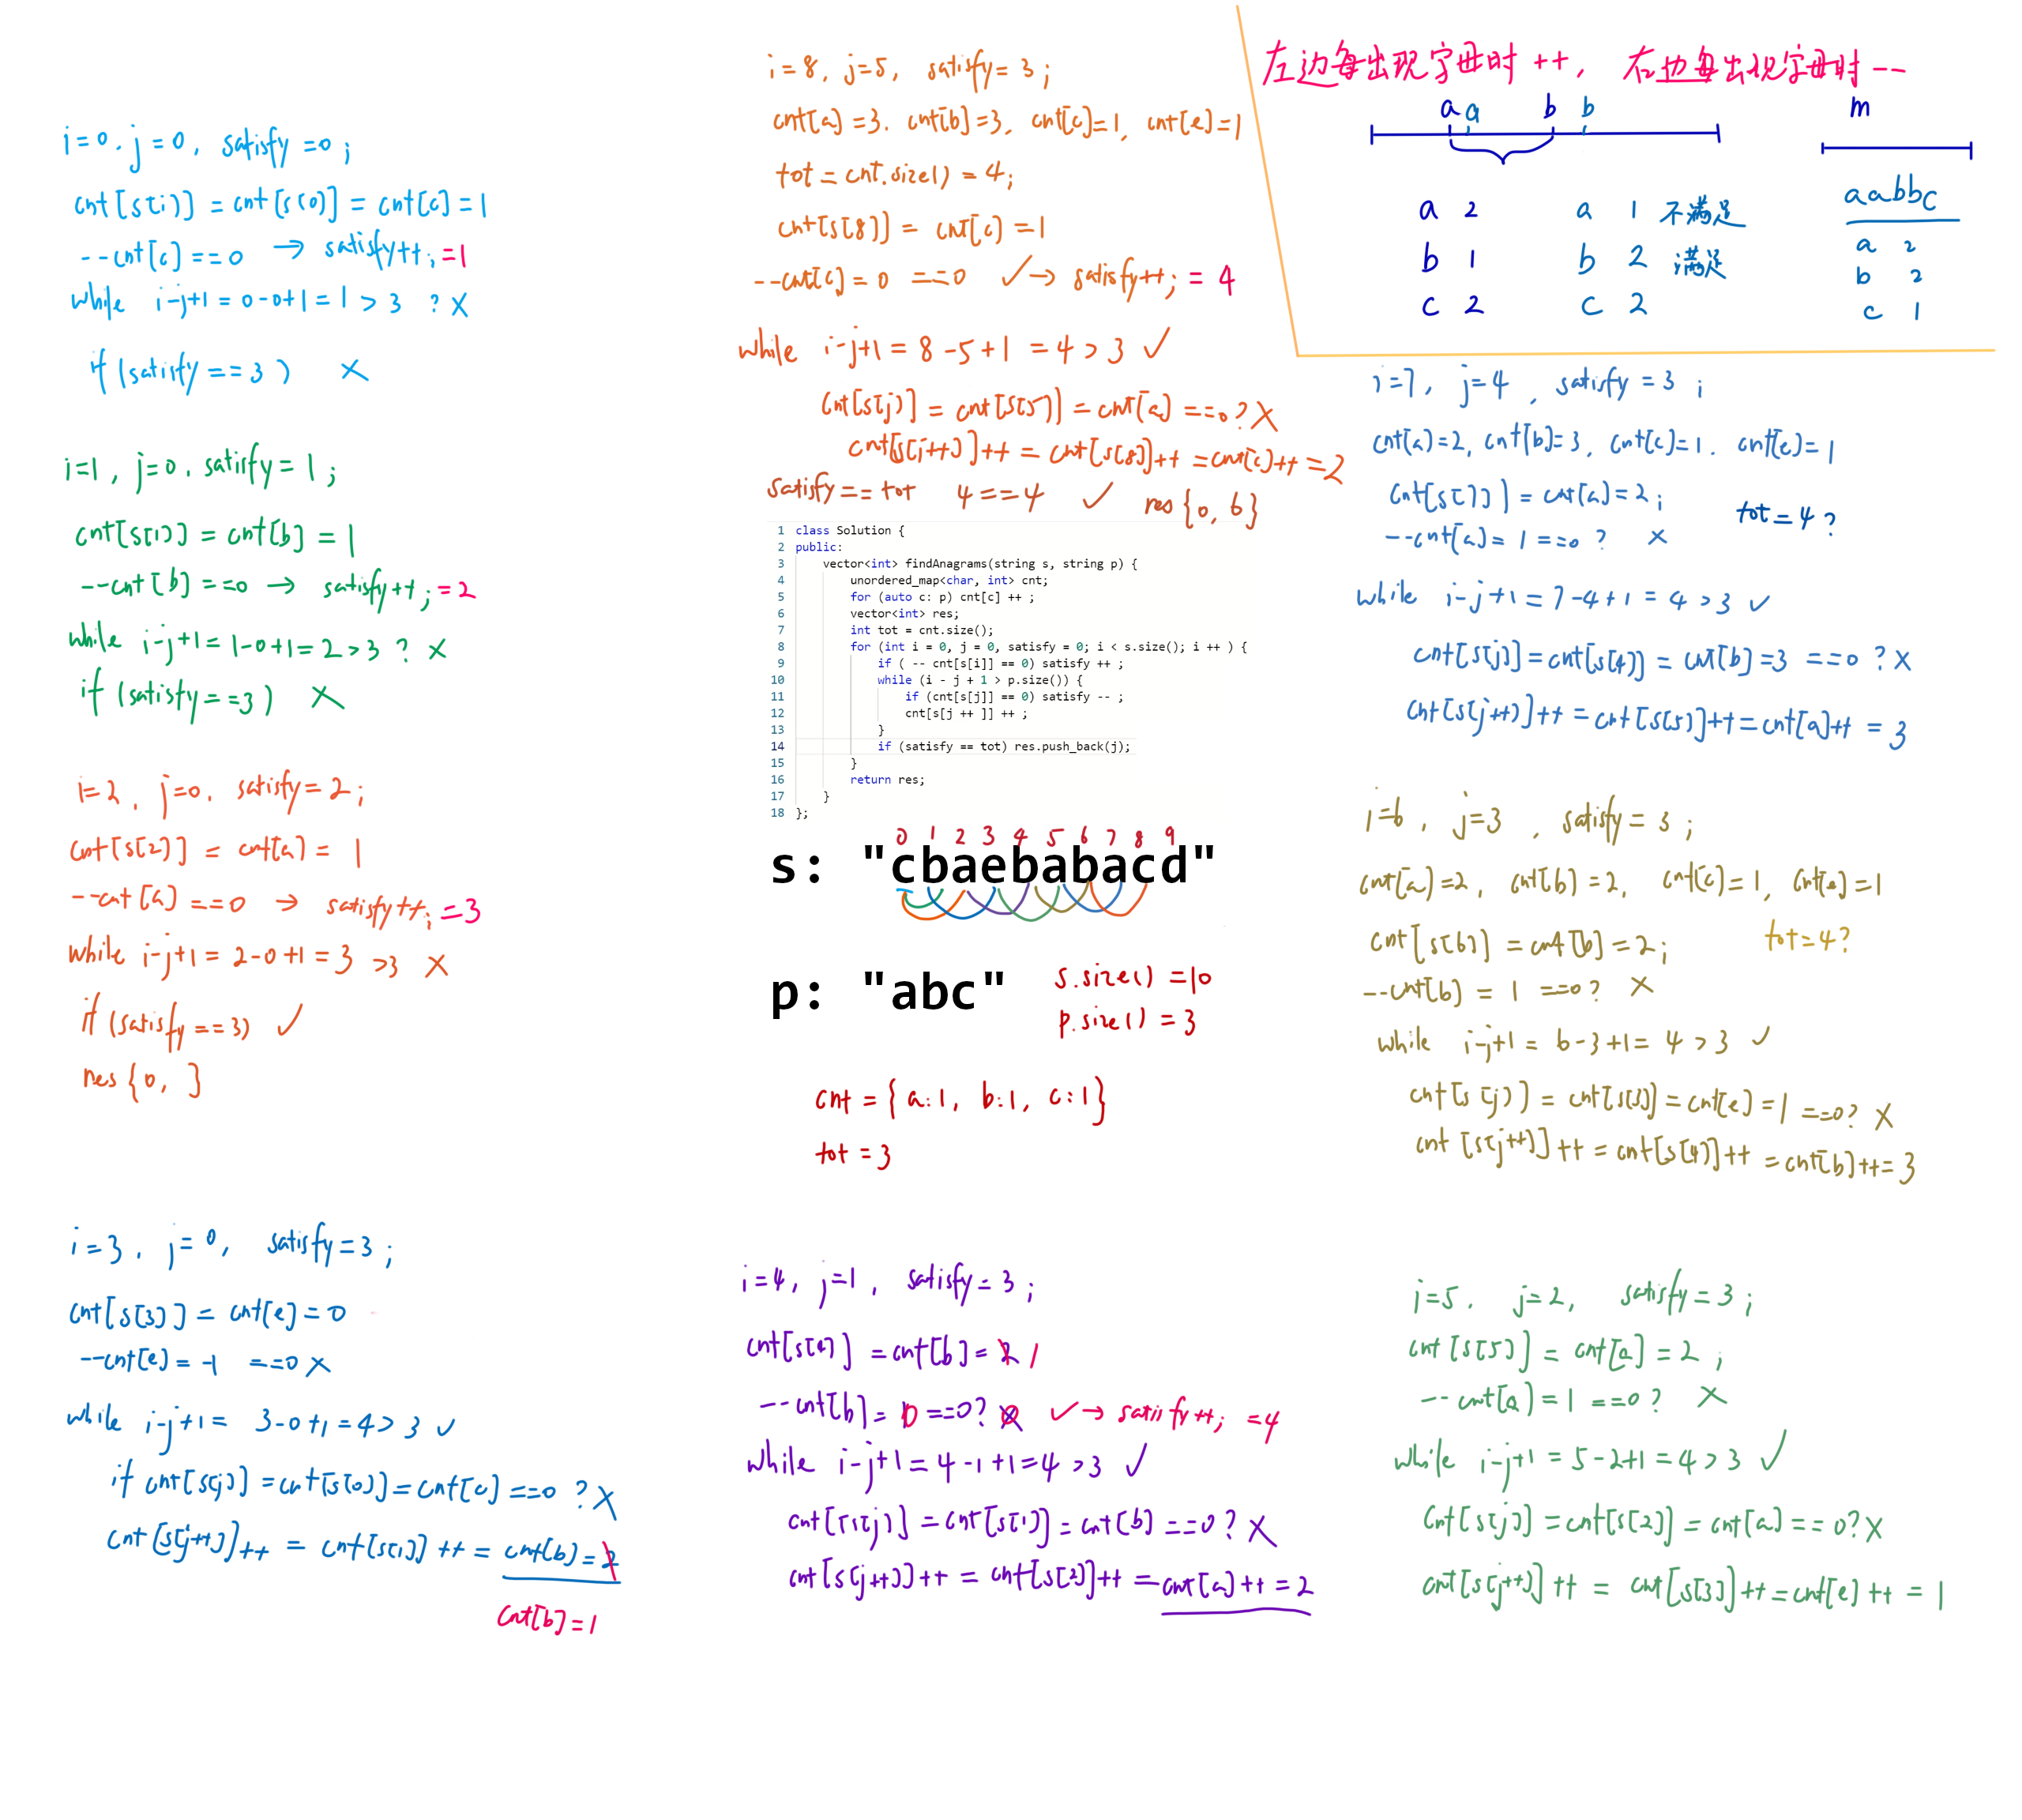 i=0, j=0, satisfy=0;
cnt[s[i]] = cnt[s[0]] = cnt[c] = 1
--cnt[c] ==0 → satisfy++; =1
while i-j+1 = 0-0+1 = 1 > 3 ? X
if (satisfy == 3) X
i=1, j=0, satisfy = 1;
cnt[s[1]] = cnt[b] = 1
--cnt[b] ==0 → satisfy++; =2
while i-j+1 = 1-0+1 = 2 > 3 ? X
if (satisfy ==3) X
i=2, j=0, satisfy = 2;
cnt[s[2]] = cnt[a] = 1
--cnt[a] ==0 → satisfy++; =3
while i-j+1 = 2-0+1 = 3 >3 X
if (satisfy ==3) ✓
res{0, }
i=3, j=0, satisfy=3;
cnt[s[3]] = cnt[e] = 0
--cnt[e] = -1 ==0 X
while i-j+1 = 3-0+1 = 4 > 3 ✓
if cnt[s[j]] = cnt[s[0]] = cnt[c] ==0 ? X
cnt[s[j++]]++ = cnt[s[1]]++ = cnt[b] = 2
cnt[b]=1
i=8, j=5, satisfy = 3;
cnt[a]=3. cnt[b]=3, cnt[c]=1, cnt[e]=1
tot = cnt.size() = 4;
cnt[s[8]] = cnt[c] = 1
--cnt[c] = 0 ==0 ✓→ satisfy++; = 4
while i-j+1 = 8-5+1 = 4 > 3 ✓
cnt[s[j]] = cnt[s[5]] = cnt[a] ==0? X
cnt[s[j++]]++ = cnt[s[8]]++ = cnt[c]++ = 2
satisfy == tot 4==4 ✓ res{0, 6}
1 class Solution {
2 public:
3 vector<int> findAnagrams(string s, string p) {
4 unordered_map<char, int> cnt;
5 for (auto c: p) cnt[c] ++ ;
6 vector<int> res;
7 int tot = cnt.size();
8 for (int i = 0, j = 0, satisfy = 0; i < s.size(); i ++ ) {
9 if ( -- cnt[s[i]] == 0) satisfy ++ ;
10 while (i - j + 1 > p.size()) {
11 if (cnt[s[j]] == 0) satisfy -- ;
12 cnt[s[j ++ ]] ++ ;
13 }
14 if (satisfy == tot) res.push_back(j);
15 }
16 return res;
17 }
18 };
0 1 2 3 4 5 6 7 8 9
s: "cbaebabacd"
p: "abc"
s.size() = 10
p.size() = 3
cnt = {a:1, b:1, c:1}
tot = 3
i=4, j=1, satisfy = 3;
cnt[s[4]] = cnt[b] = 2 1
--cnt[b] = 0 ==0? X ✓→ satisfy++; =4
while i-j+1 = 4-1+1 = 4 > 3 ✓
cnt[s[j]] = cnt[s[1]] = cnt[b] ==0? X
cnt[s[j++]]++ = cnt[s[2]]++ = cnt[a]++ = 2
左边每出现字母时 ++, 右边每出现字母时 --
a a b b m
aabbc
a 2 a 1 不满足
b 1 b 2 满足
c 2 c 2
a 2
b 2
c 1
i=7, j=4, satisfy = 3;
cnt[a]=2, cnt[b]=3, cnt[c]=1. cnt[e]=1
cnt[s[7]] = cnt[a] = 2;
tot = 4?
--cnt[a] = 1 ==0 ? X
while i-j+1 = 7-4+1 = 4 > 3 ✓
cnt[s[j]] = cnt[s[4]] = cnt[b] = 3 ==0 ? X
cnt[s[j++]]++ = cnt[s[5]]++ = cnt[a]++ = 3
i=6, j=3, satisfy = 3;
cnt[a]=2, cnt[b]=2, cnt[c]=1, cnt[e]=1
cnt[s[6]] = cnt[b] = 2;
tot=4?
--cnt[b] = 1 ==0? X
while i-j+1 = 6-3+1 = 4 > 3 ✓
cnt[s[j]] = cnt[s[3]] = cnt[e] = 1 ==0? X
cnt[s[j++]]++ = cnt[s[4]]++ = cnt[b]++ = 3
i=5, j=2, satisfy = 3;
cnt[s[5]] = cnt[a] = 2;
--cnt[a] = 1 ==0? X
while i-j+1 = 5-2+1 = 4 > 3 ✓
cnt[s[j]] = cnt[s[2]] = cnt[a] == 0? X
cnt[s[j++]]++ = cnt[s[3]]++ = cnt[e]++ = 1